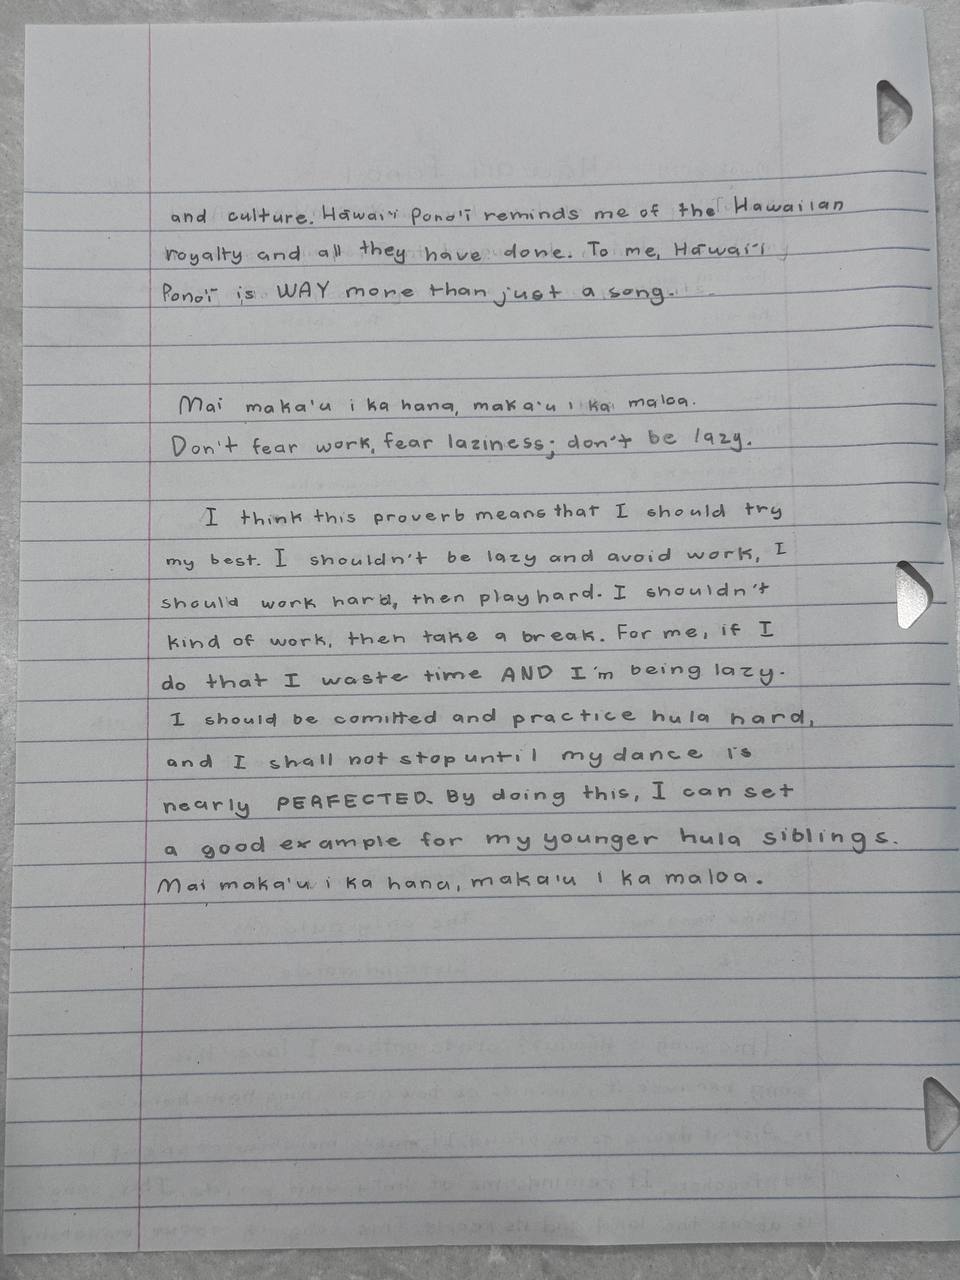 and culture. Hāwai'i Pono'ī reminds me of the Hawaiian
royalty and all they have done. To me, Hāwai'i
Pono'ī is WAY more than just a song.
Mai maka'u i ka hana, maka'u i ka maloa.
Don't fear work, fear laziness; don't be lazy.
I think this proverb means that I should try
my best. I shouldn't be lazy and avoid work, I
should work hard, then play hard. I shouldn't
kind of work, then take a break. For me, if I
do that I waste time AND I'm being lazy.
I should be comitted and practice hula hard,
and I shall not stop until my dance is
nearly PERFECTED. By doing this, I can set
a good example for my younger hula siblings.
Mai maka'u i ka hana, maka'u i ka maloa.